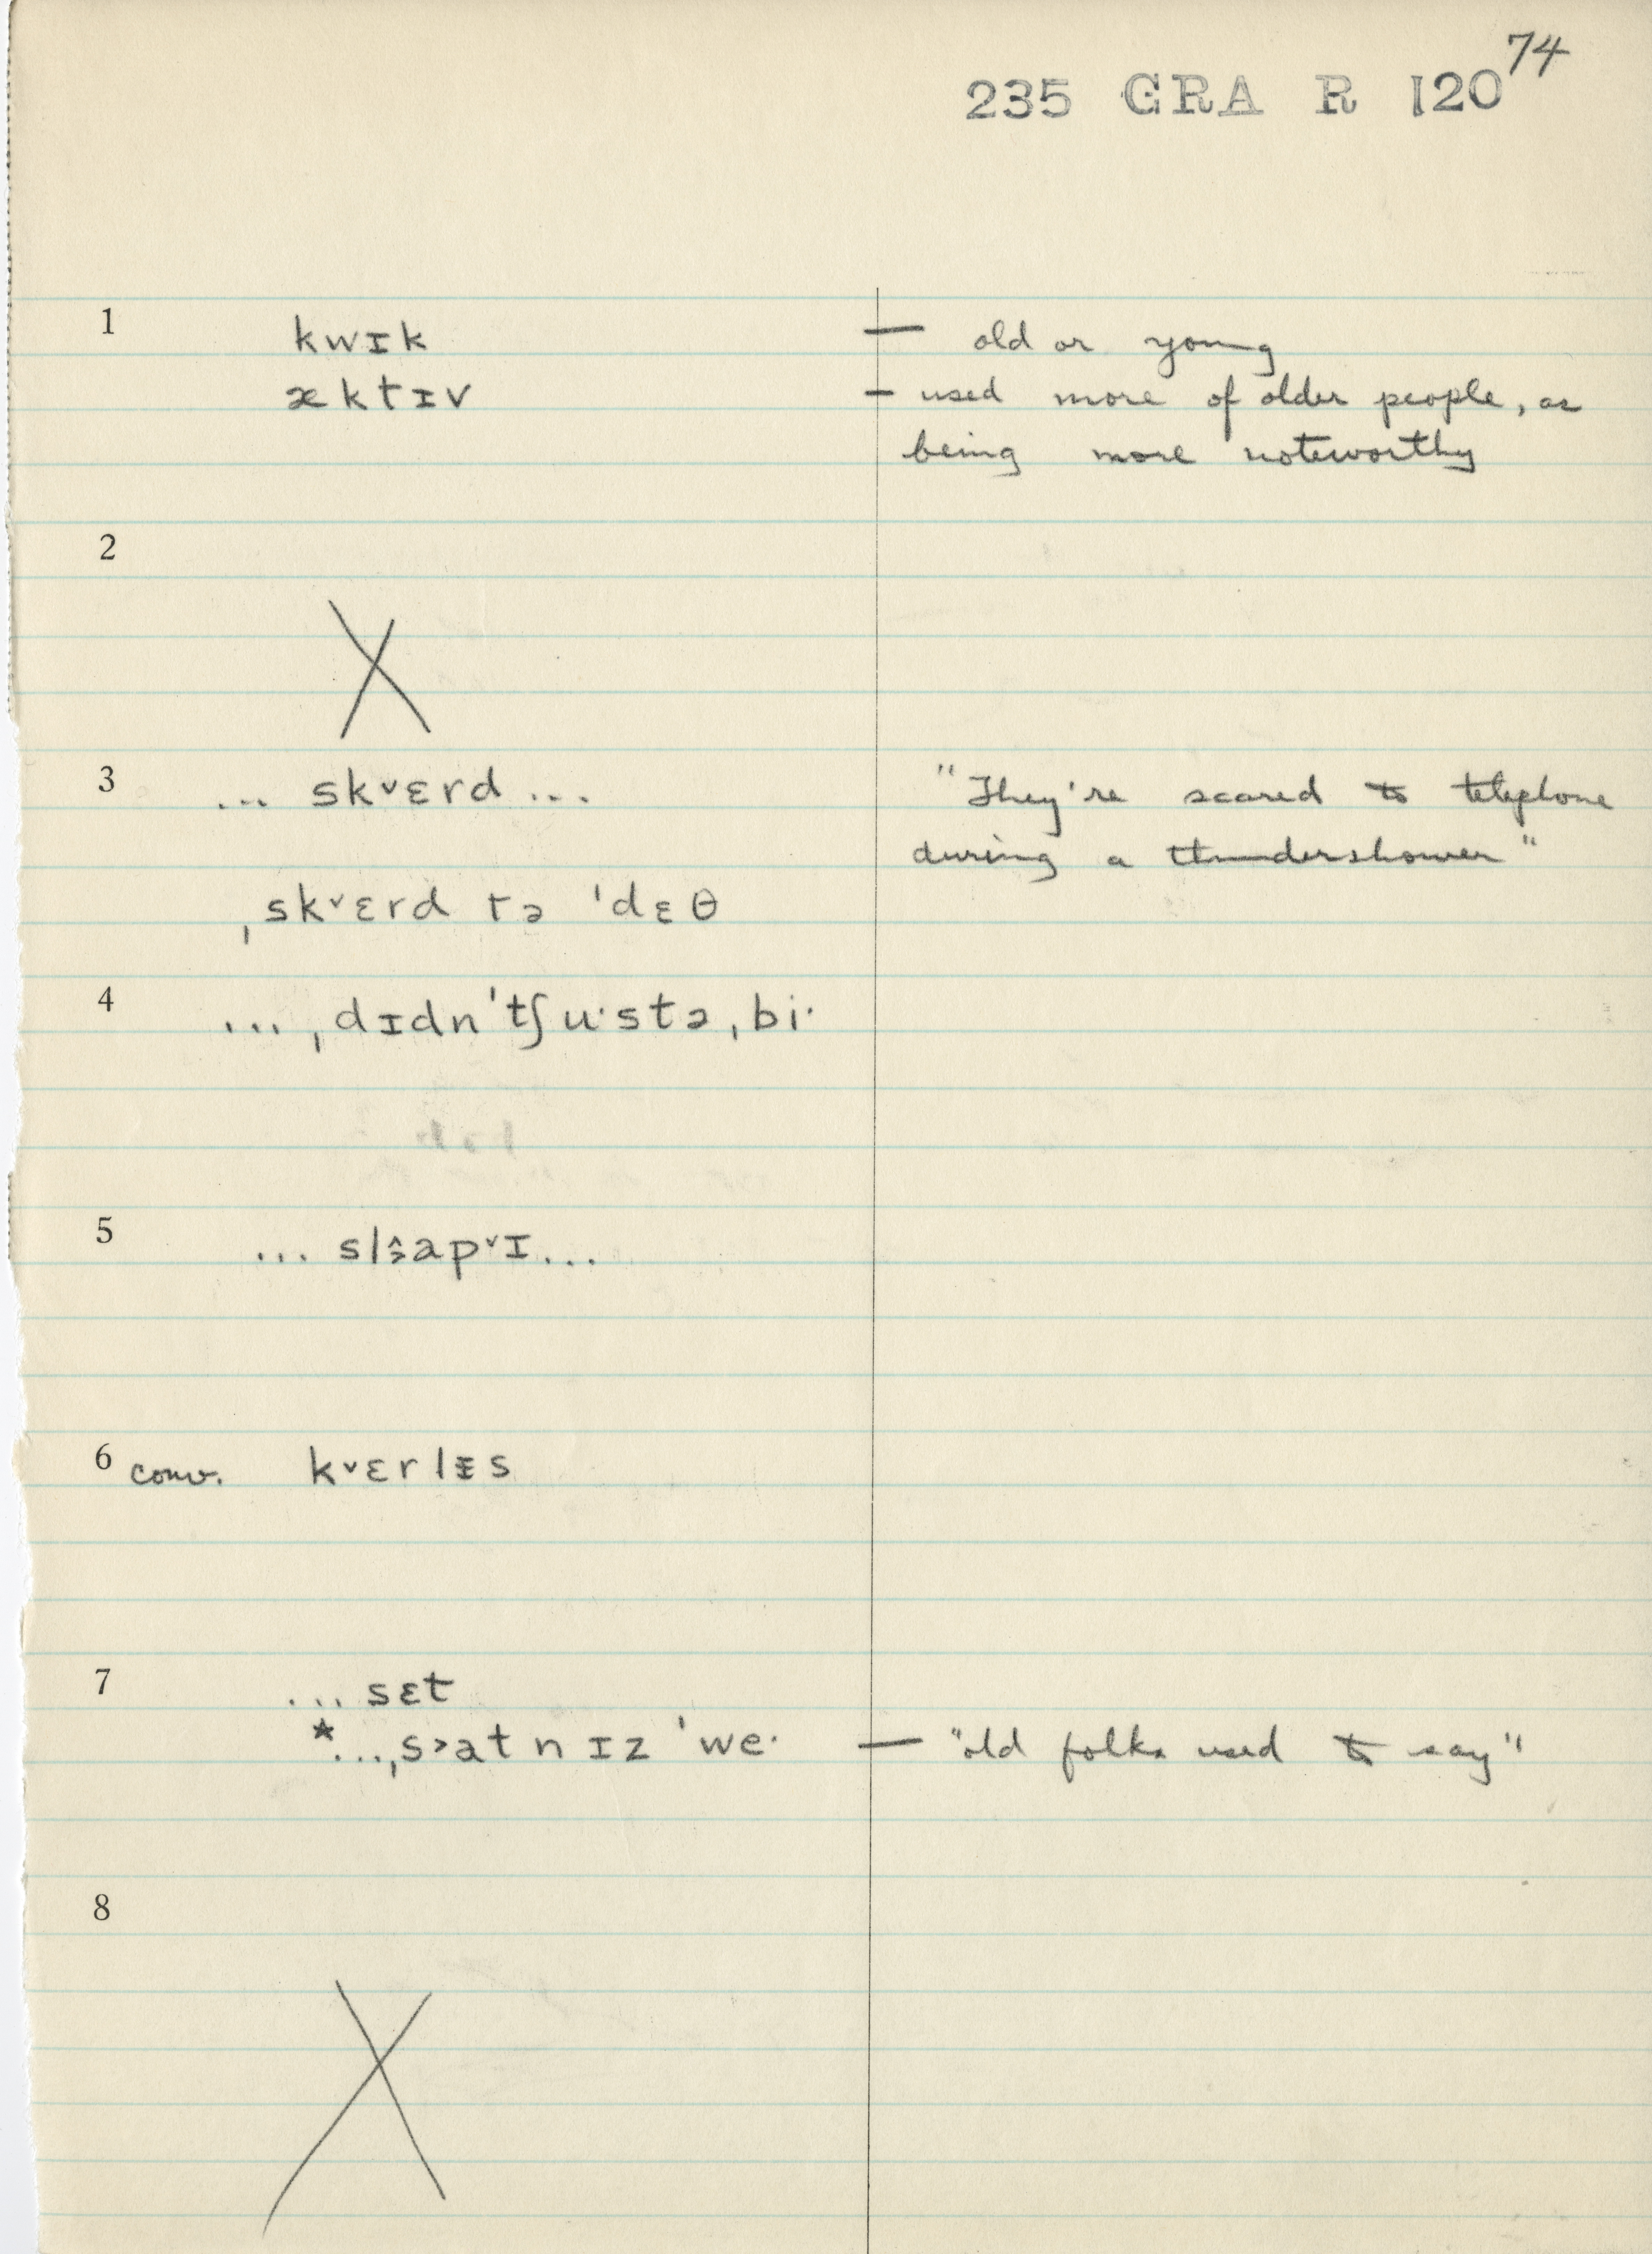 74
235 GRA R 120
1 kwɪk — old or young
æktɪv — used more of older people, as
being more noteworthy
2
3 ... sk˅ɛrd ... "They're scared to telephone
during a thundershower"
ˌsk˅ɛrd tə ˈdɛθ
4 ... ˌdɪdnˈtʃu·stə ˌbi·
5
6 conv. k˅ɛrlɪs
7 ... sɛt
*... ˌs˃atn ɪz ˈwe· — "old folks used to say"
8